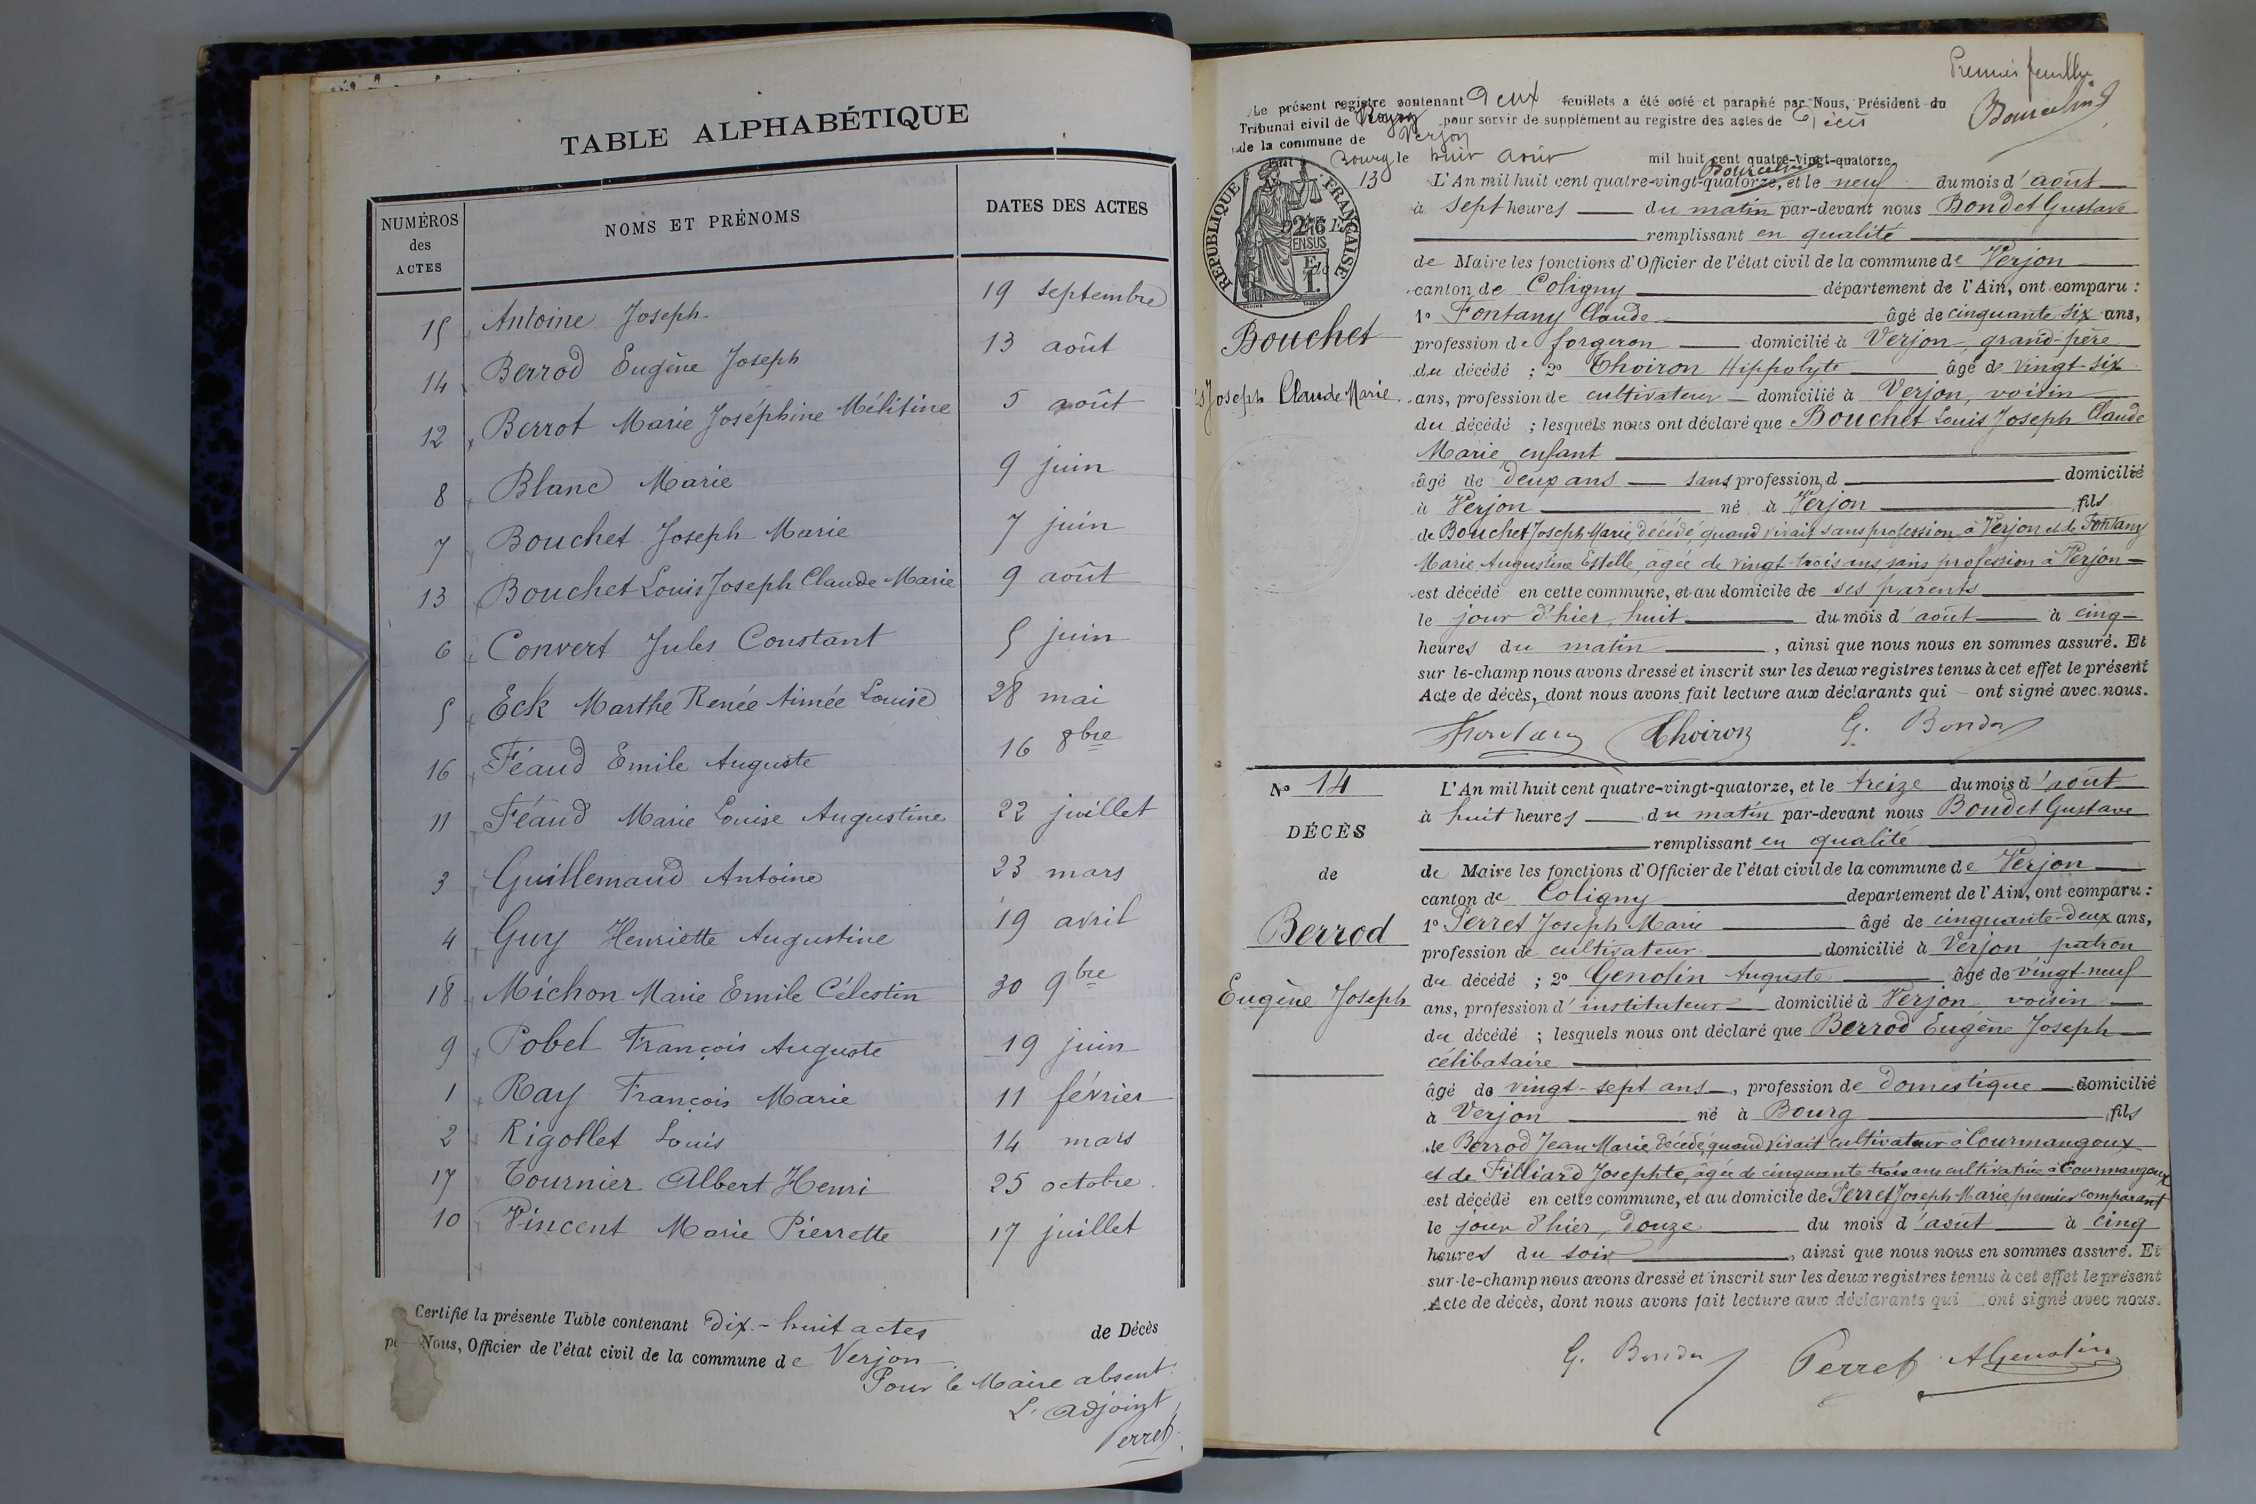 TABLE ALPHABÉTIQUE
NUMÉROS des ACTES
NOMS ET PRÉNOMS
DATES DES ACTES
15 Antoine Joseph 19 septembre
14 Berrod Eugène Joseph 13 août
12 Berrot Marie Joséphine Mélitine 5 août
8 Blanc Marie 9 juin
7 Bouchet Joseph Marie 7 juin
13 Bouchet Louis Joseph Claude Marie 9 août
6 Convert Jules Constant 5 juin
5 Eck Marthe Renée Aimée Louise 28 mai
16 Féaud Emile Auguste 16 8bre
11 Féaud Marie Louise Augustine 22 juillet
3 Guillemaud Antoine 23 mars
4 Guy Henriette Augustine 19 avril
18 Michon Marie Emile Célestin 30 9bre
9 Pobel François Auguste 19 juin
1 Ray François Marie 11 février
2 Rigollet Louis 14 mars
17 Tournier Albert Henri 25 octobre
10 Vincent Marie Pierrette 17 juillet
Certifié la présente Table contenant dix-huit actes de Décès
Nous, Officier de l'état civil de la commune de Verjon
Pour le Maire absent
L'adjoint
Perret
Premier feuillet
Le présent registre contenant Deux feuillets a été coté et paraphé par Nous, Président du
Tribunal civil de Bourg pour servir de supplément au registre des actes de Décès
de la commune de Verjon
Bourg le huit août mil huit cent quatre-vingt-quatorze
RÉPUBLIQUE FRANÇAISE
13
L'An mil huit cent quatre-vingt-quatorze, et le neuf du mois d'août
à sept heures du matin par-devant nous Bondet Gustave
remplissant en qualité
de Maire les fonctions d'Officier de l'état civil de la commune de Verjon
canton de Coligny département de l'Ain, ont comparu :
1° Fontany Claude âgé de cinquante six ans,
Bouchet
profession de forgeron domicilié à Verjon, grand-père
du décédé ; 2° Thoiron Hippolyte âgé de vingt-six
Joseph Claude Marie
ans, profession de cultivateur domicilié à Verjon, voisin
du décédé ; lesquels nous ont déclaré que Bouchet Louis Joseph Claude
Marie enfant
âgé de deux ans sans profession, d domicilié
à Verjon né à Verjon fils
de Bouchet Joseph Marie décédé quand vivait sans profession à Verjon et de Fontany
Marie Augustine Estelle, âgée de vingt-trois ans sans profession à Verjon
est décédé en cette commune, et au domicile de ses parents
le jour d'hier, huit du mois d'août à cinq
heures du matin, ainsi que nous nous en sommes assuré. Et
sur le-champ nous avons dressé et inscrit sur les deux registres tenus à cet effet le présent
Acte de décès, dont nous avons fait lecture aux déclarants qui ont signé avec nous.
Fontany Thoiron G. Bondet
N° 14
L'An mil huit cent quatre-vingt-quatorze, et le treize du mois d'août
à huit heures du matin par-devant nous Bondet Gustave
DÉCÈS
remplissant en qualité
de
de Maire les fonctions d'Officier de l'état civil de la commune de Verjon
canton de Coligny departement de l'Ain, ont comparu :
Berrod
1° Perret Joseph Marie âgé de cinquante-deux ans,
profession de cultivateur domicilié à Verjon patron
du décédé ; 2° Genolin Auguste âgé de vingt-neuf
Eugène Joseph
ans, profession d'instituteur domicilié à Verjon voisin
du décédé ; lesquels nous ont déclaré que Berrod Eugène Joseph
célibataire
âgé de vingt-sept ans, profession de domestique domicilié
à Verjon né à Bourg fils
de Berrod Jean Marie décédé, quand vivait cultivateur à Courmangoux
et de Filliard Josephte, âgée de cinquante trois ans cultivatrice à Courmangoux
est décédé en cette commune, et au domicile de Perret Joseph Marie premier comparant
le jour d'hier, douze du mois d'août à cinq
heures du soir, ainsi que nous nous en sommes assuré. Et
sur-le-champ nous avons dressé et inscrit sur les deux registres tenus à cet effet le présent
Acte de décès, dont nous avons fait lecture aux déclarants qui ont signé avec nous.
G. Bondet Perret AGenolin